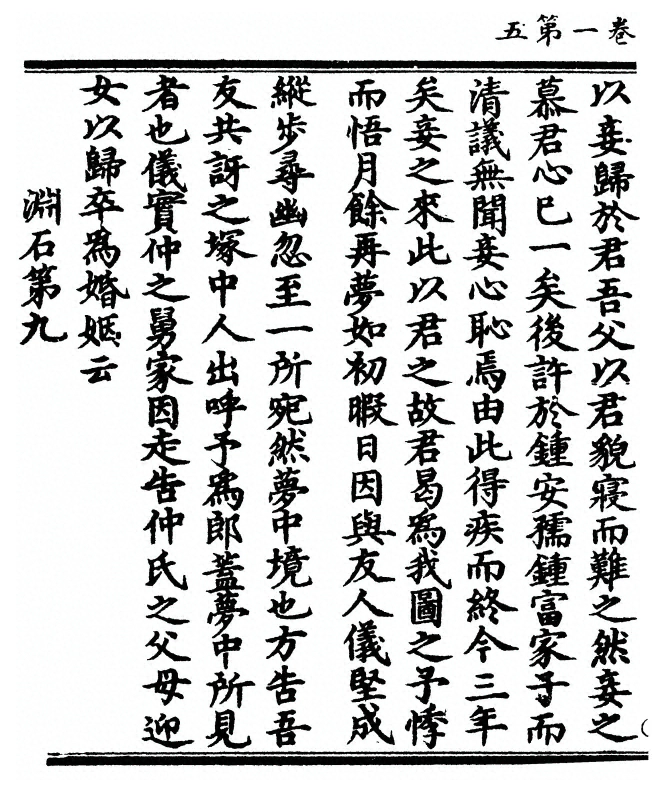 五第一卷
以妾歸於君吾父以君貌寢而難之然妾之
慕君心已一矣後許於鍾安孺鍾富家子而
清議無聞妾心恥焉由此得疾而終今三年
矣妾之來此以君之故君曷爲我圖之予悸
而悟月餘再夢如初暇日因與友人儀堅成
縱步尋幽忽至一所宛然夢中境也方告吾
友共訝之塚中人出呼予爲郎蓋夢中所見
者也儀實仲之舅家因走告仲氏之父母迎
女以歸卒爲婚姻云
淵石第九